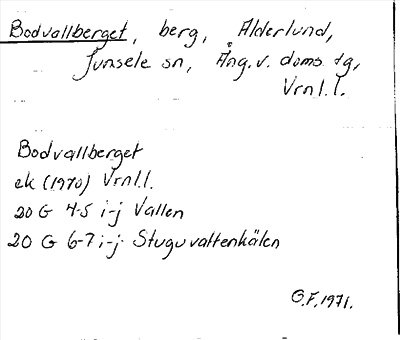 Bodvallberget, berg, Ålderlund,
Junsele sn, Ång. v. doms. tg,
Vrnl. l.
Bodvallberget
ek (1970) Vrnl.l.
20 G 4-5 i-j Vallen
20 G 6-7 i-j Stuguvattenkälen
G.F. 1971.